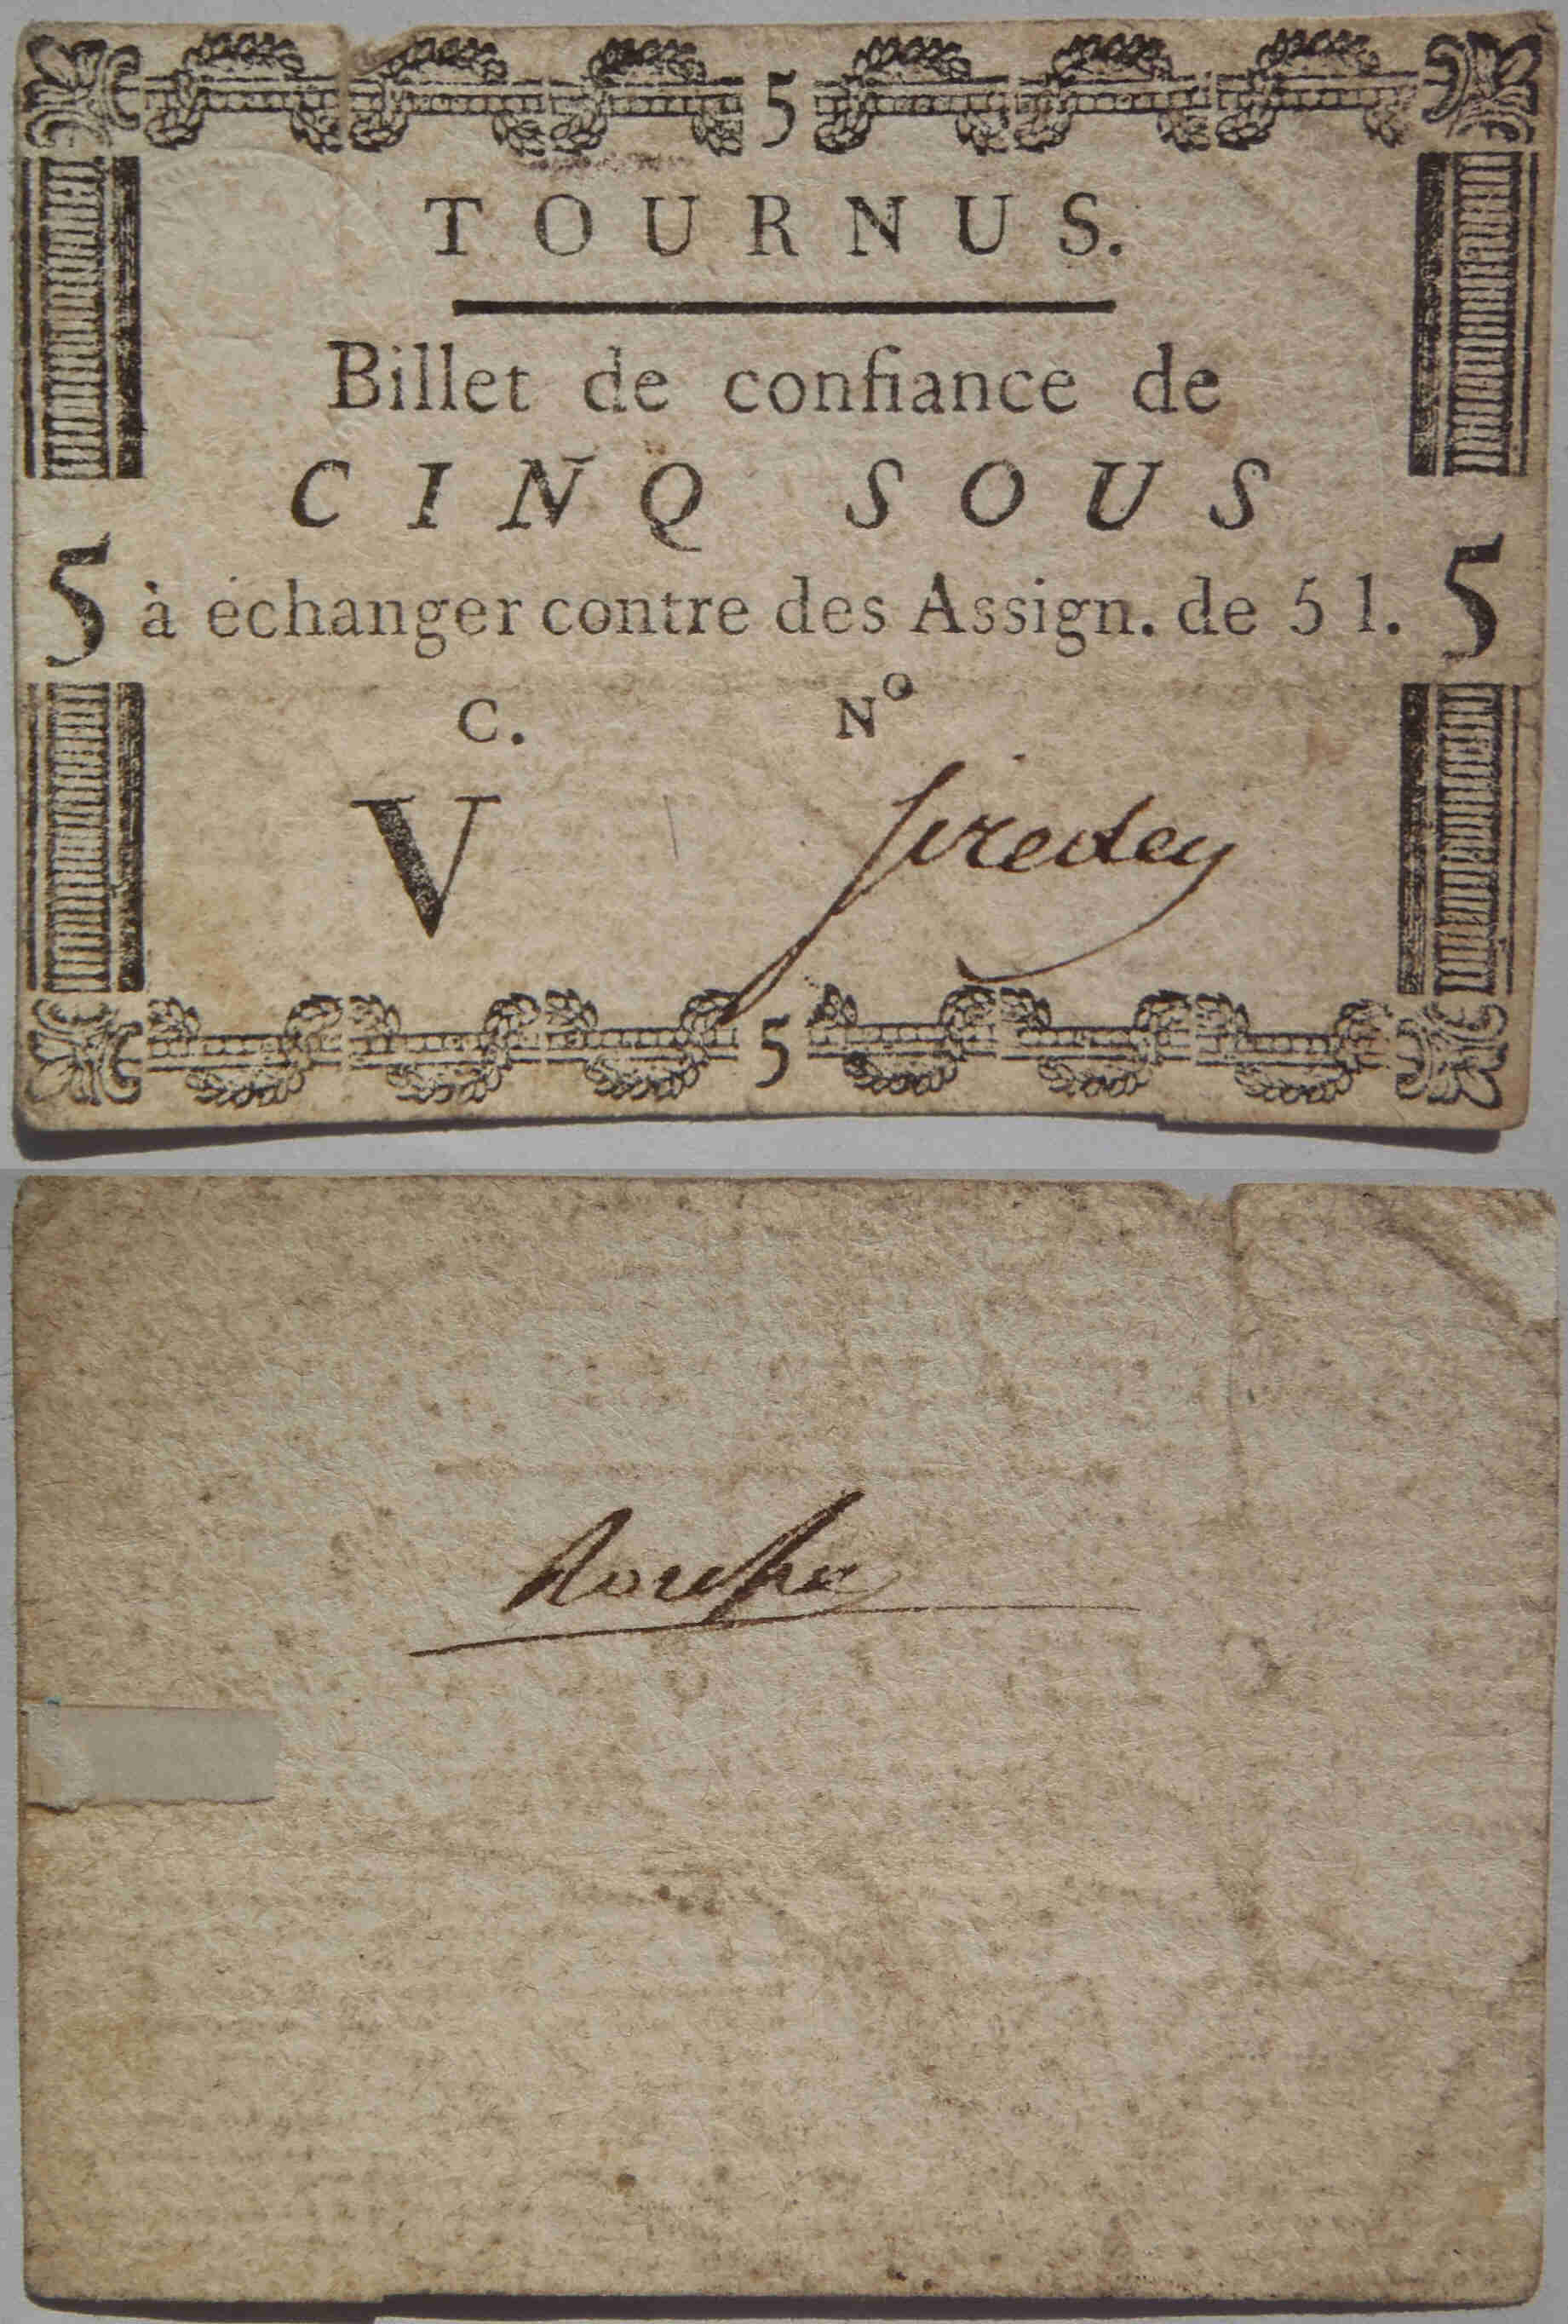 5
TOURNUS.
Billet de confiance de
CINQ SOUS
5 à échanger contre des Assign. de 5 l. 5
C. Nº
V
5